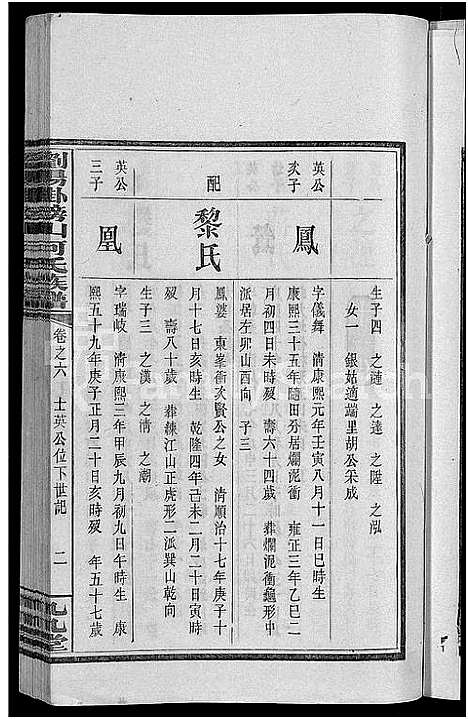 生子四 之漣 之達 之陞 之泓
女一 銀姑適端里胡公朱成
英公
次子
鳳
字儀舞 清康熙元年壬寅八月十一日巳時生
康熙三十五年隨田分居爛泥衝 雍正三年乙巳二
月初四日未時歿 壽六十四歲 葬爛泥衝龜形中
派居左卯山酉向 子三
配
黎氏
鳳婆 東峯衝次賢公之女 清順治十七年庚子十
月十七日亥時生 乾隆四年己未二月二十日寅時
歿 壽八十歲 葬練江山正虎形二派巽山乾向
生子三 之漢 之清 之潮
英公
三子
凰
字瑞岐 清康熙三年甲辰九月初九日午時生 康
熙五十九年庚子正月二十日亥時歿 年五十七歲
劉陽掛榜山何氏族譜
卷之六 士英公位下世記 二
九九堂